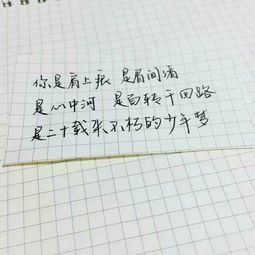 你是肩上痕 是眉间清
是心中河 是百转千回路
是二十载来不朽的少年梦